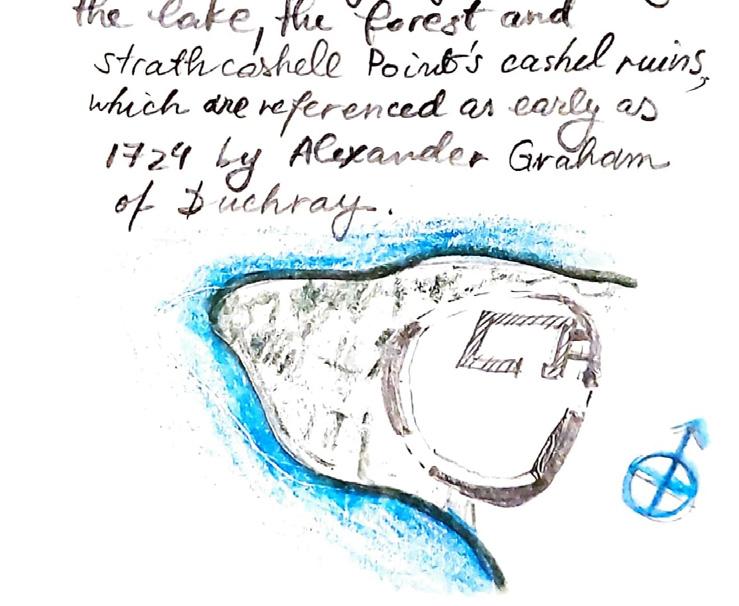 the lake, the forest and
strathcashell Point's cashel ruins,
which are referenced as early as
1724 by Alexander Graham
of Duchray.